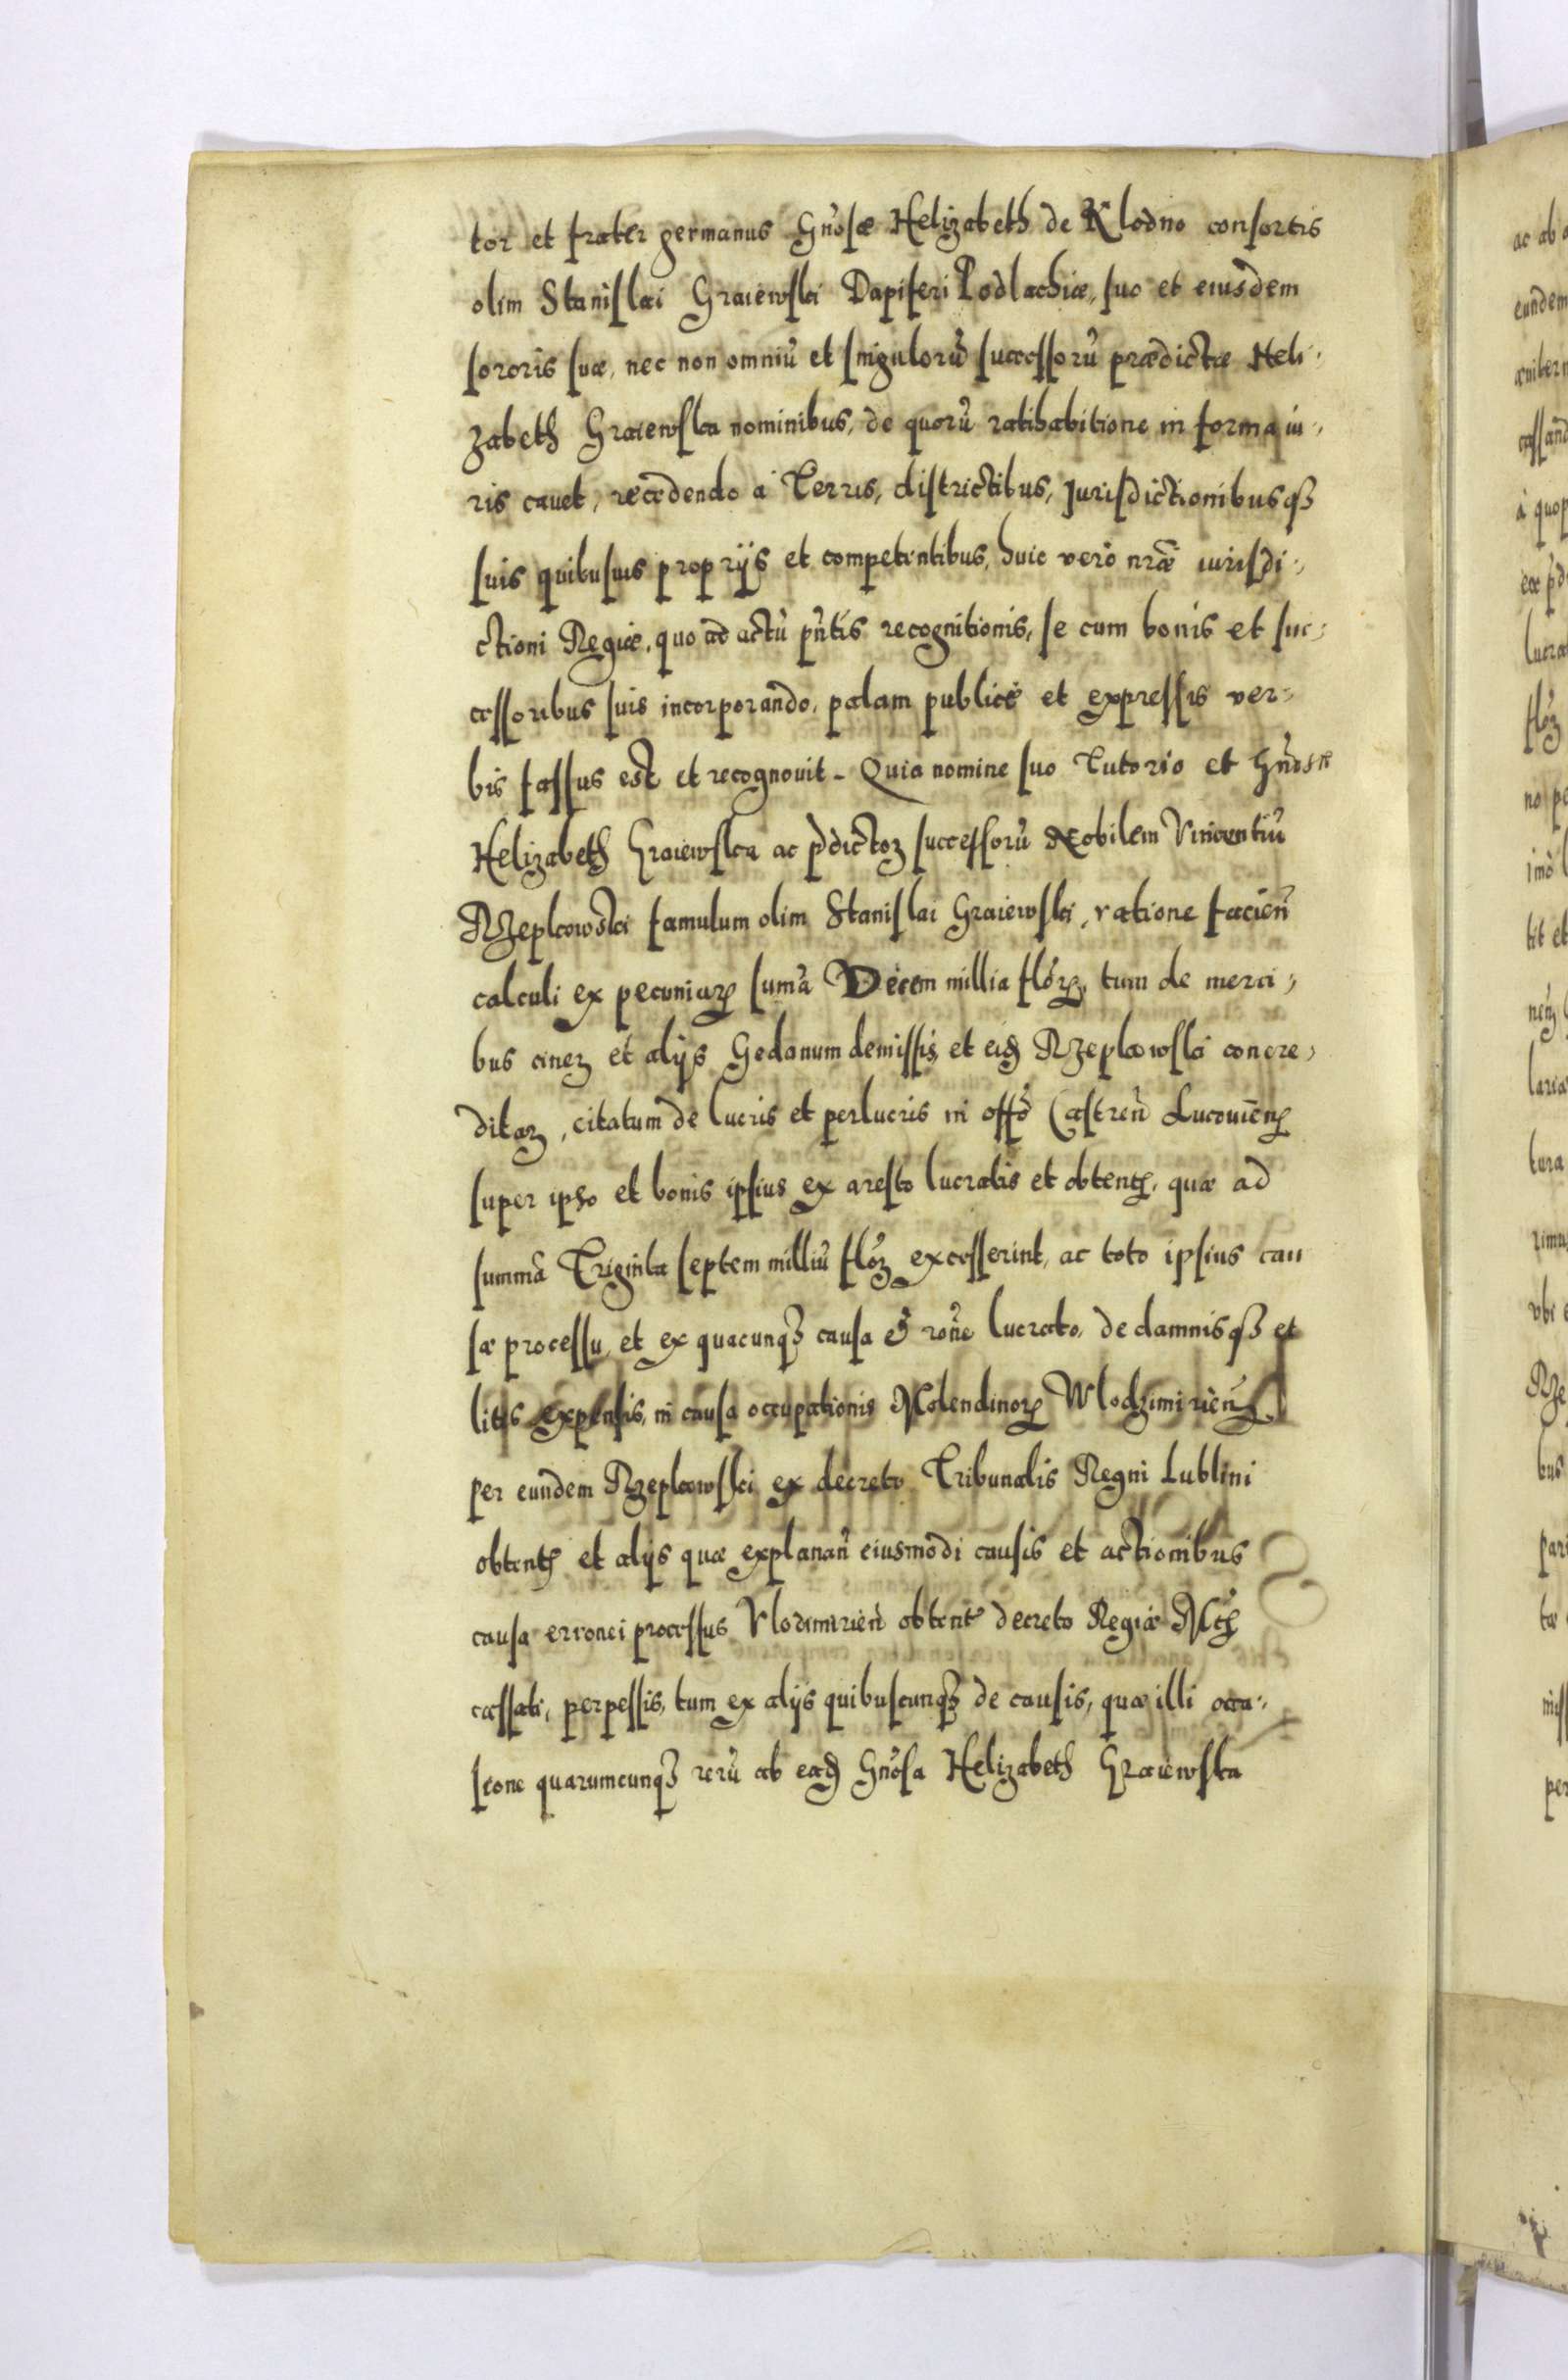 tor et frater germanus Gnôsæ Helizabeth de Klodno consortis
olim Stanislai Graiewski Dapiferi Podlachiæ, suo et eiusdem
sororis suæ, nec non omniũ et singulorũ successorũ prædictæ Heli-
zabeth Graiewska nominibus, de quorũ ratihabitione in forma iu-
ris cauet, recedendo à Terris, districtibus, Jurisdictionibusq3
suis quibusuis proprijs et competentibus, huic verò nrãe iurisdi-
ctioni Regiæ, quo ad actũ pñtis recognitionis, se cum bonis et suc-
cessoribus suis incorporando, palam publicè et expressis ver-
bis fassus est et recognouit - Quia nomine suo Tutorio et Gnôsæ
Helizabeth Graiewska ac p̃dictoꝝ successorũ Nobilem Vincentiũ
Rzepkowski famulum olim Stanislai Graiewski, ratione facien̄
calculi ex pecuniaꝝ sumã Decem millia flôꝝ, tum de merci-
bus cineꝝ et alijs Gedanum demissis, et eid̄ Rzepkowski concre-
ditaꝝ, citatum de lucris et perlucris in offõ Castren̄ Lucouien̄
super ipso et bonis ipsius ex aresto lucratis et obtent̄, quæ ad
summã Triginta septem milliũ flôꝝ excesserint, ac toto ipsius cau
sæ processu, et ex quacunq3 causa et rône lucrato, de damnisq3 et
litis expensis, in causa occupationis Molendinoꝝ Wlodzimirien̄
per eundem Rzepkowski ex decreto Tribunalis Regni Lublini
obtent̄ et alijs quæ explanan̄ eiusmodi causis et actionibus
causa erronei processus Vlodimirien̄ obtent̄ decreto Regiæ Mt̄
cassati, perpessis, tum ex alijs quibuscunq3 de causis, quæ illi occa-
sione quarumcunq3 rerũ ab ead̄ Gnôsa Helizabeth Graiewska